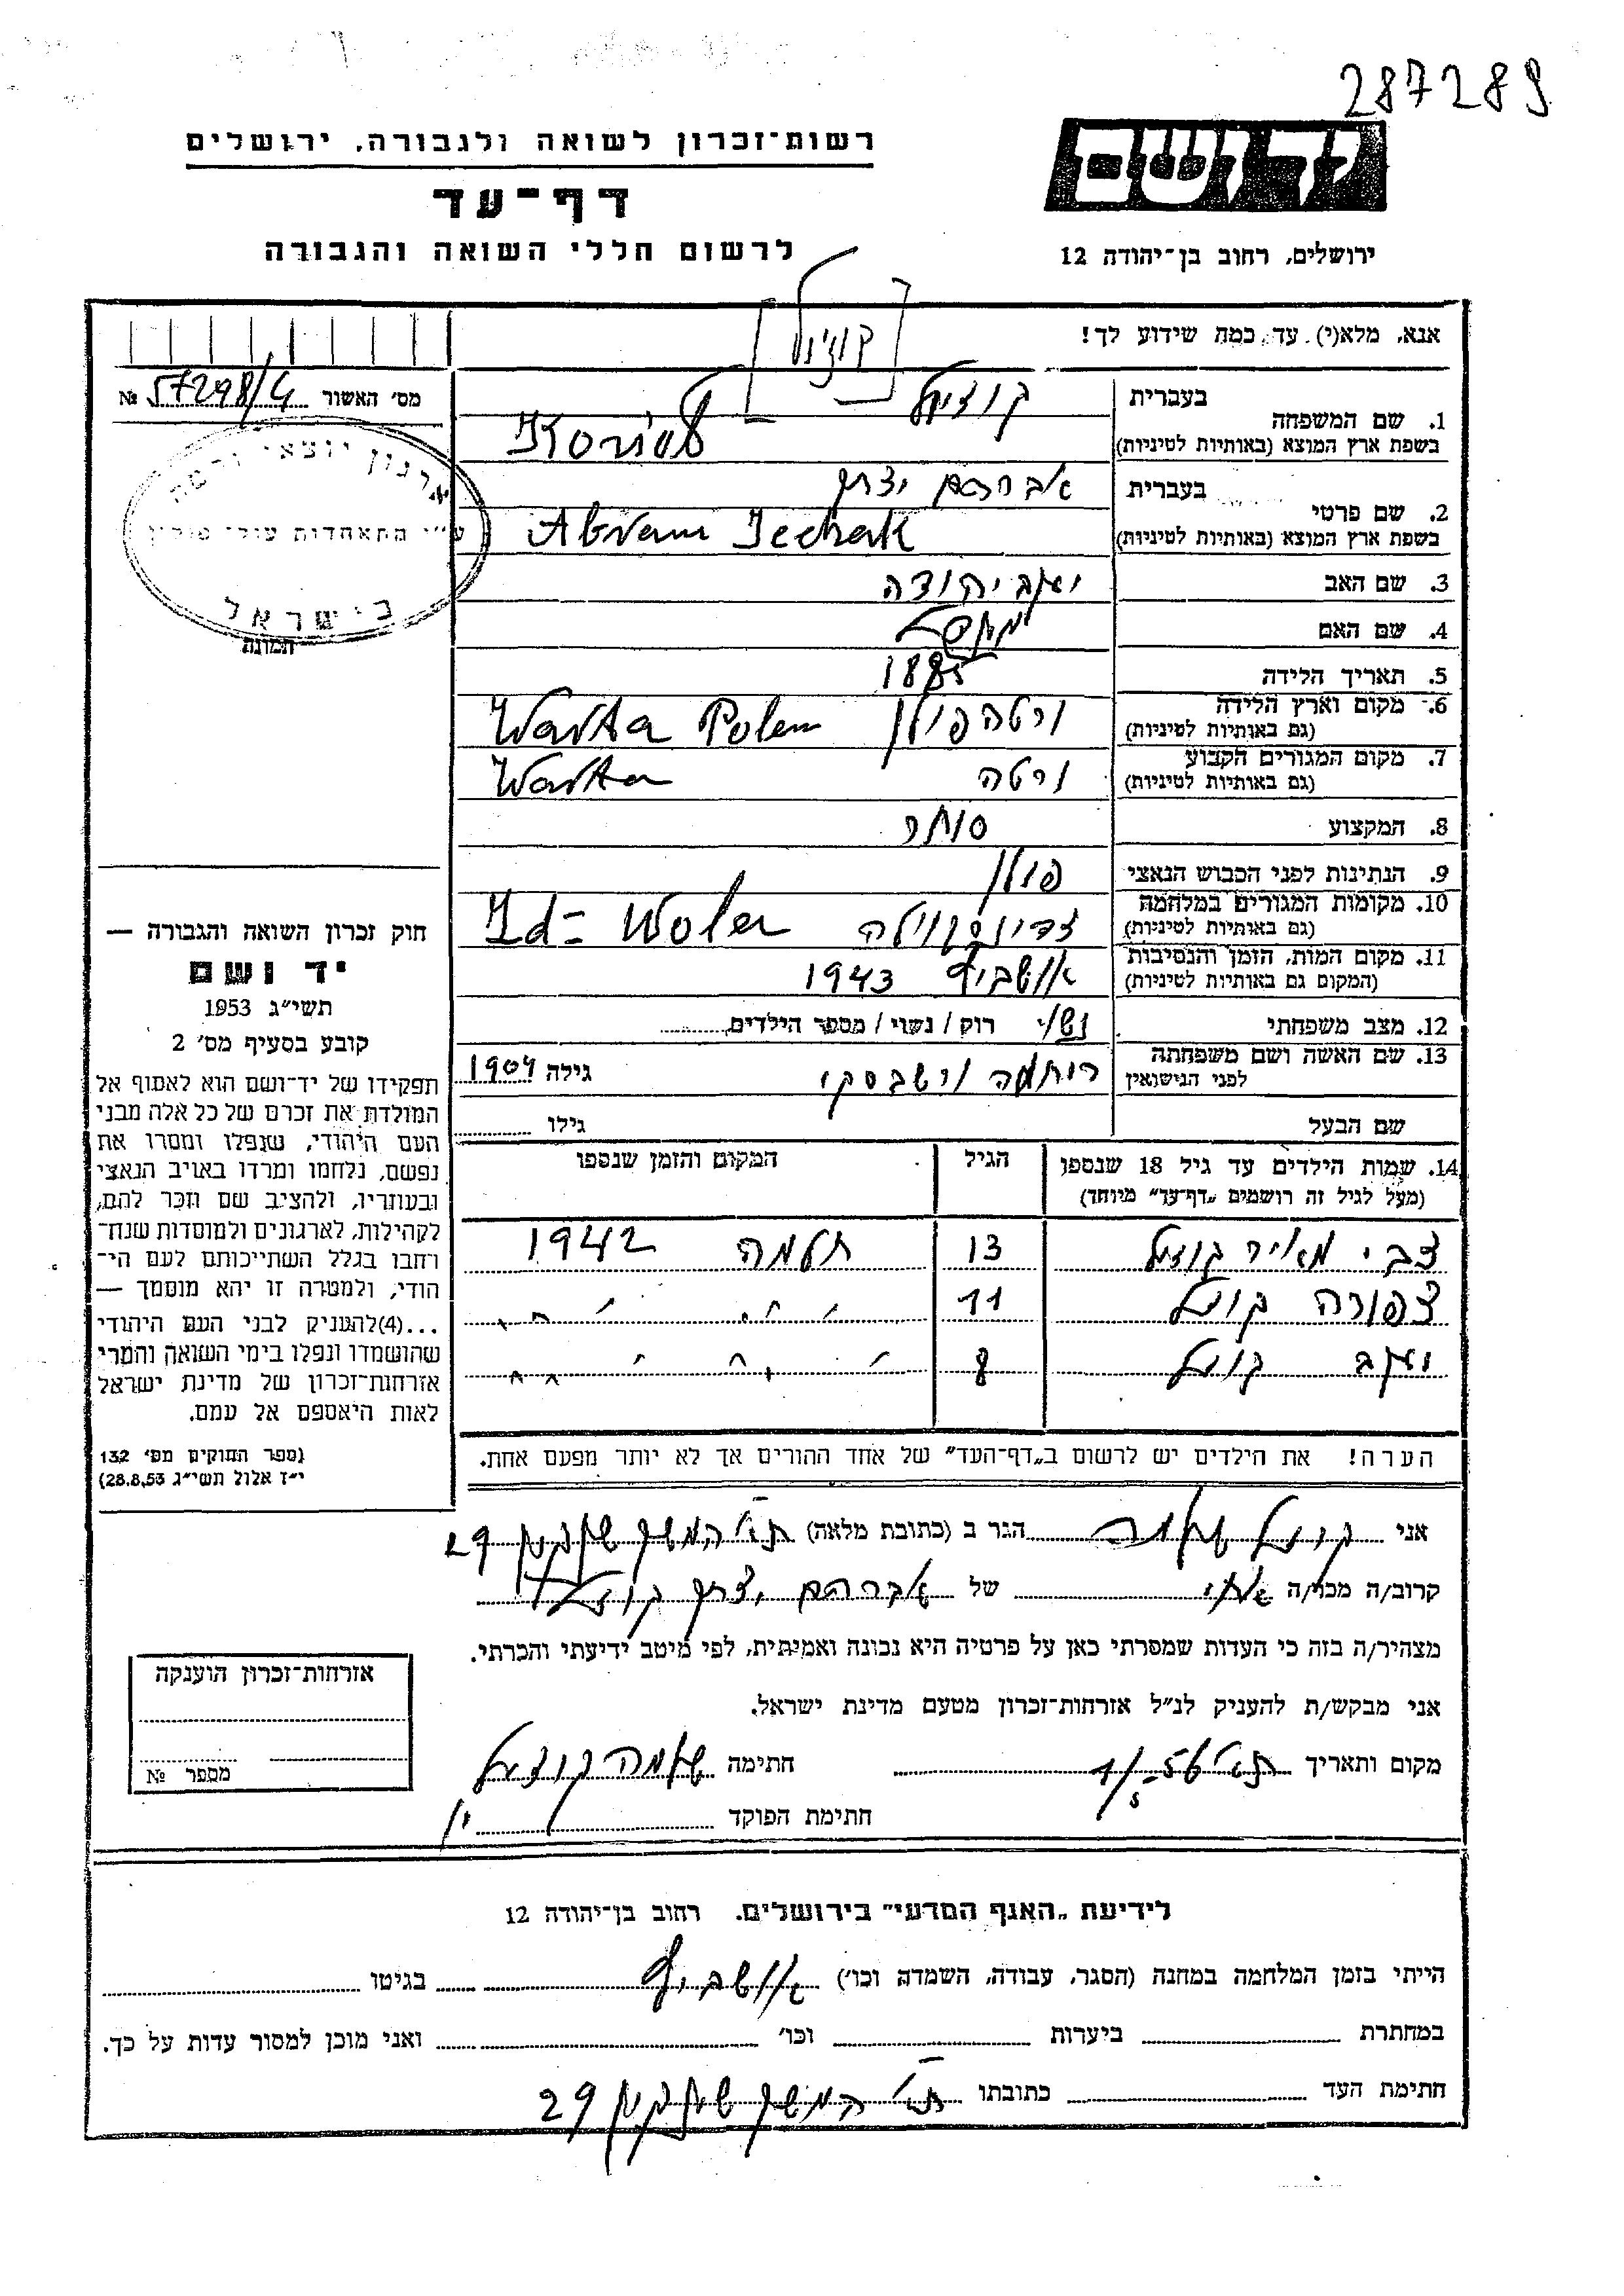 287289
יד ושם
רשות־זכרון לשואה ולגבורה, ירושלים
דף־עד
לרשום חללי השואה והגבורה
ירושלים, רחוב בן־יהודה 12
אנא, מלא(י) עד כמה שידוע לך!
מס' האשור № 57298/4
ארגון יוצאי ורטה
ע"י התאחדות עולי פולין
בישראל
תמונת
1. שם המשפחה
בעברית קוזיול
בשפת ארץ המוצא (באותיות לטיניות) Koriol
2. שם פרטי
בעברית אברהם יצחק
בשפת ארץ המוצא (באותיות לטיניות) Abram Icchak
3. שם האב יעקב יהודה
4. שם האם
5. תאריך הלידה 1885
6. מקום וארץ הלידה (גם באותיות לטיניות) ורטה פולין Warta Polen
7. מקום המגורים הקבוע (גם באותיות לטיניות) ורטה Warta
8. המקצוע סוחר
9. הנתינות לפני הכבוש הנאצי פולין
10. מקומות המגורים במלחמה (גם באותיות לטיניות) זדונסקוולה Zd= Woler
11. מקום המות, הזמן והנסיבות (המקום גם באותיות לטיניות) אושביץ 1943
12. מצב משפחתי רוק / נשוי / מספר הילדים נשוי
13. שם האשה ושם משפחתה לפני הנישואין ורשבסקי גילה 1904
שם הבעל גילו
14. שמות הילדים עד גיל 18 שנספו (מעל לגיל זה רושמים „דף־עד" מיוחד) הגיל המקום והזמן שנספו
צבי מאיר קוזיול 13 חלמה 1942
צפורה קוזיול 11 " " "
יעקב קוזיול 8 " " "
הערה! את הילדים יש לרשום ב„דף־העד" של אחד ההורים אך לא יותר מפעם אחת.
חוק זכרון השואה והגבורה —
יד ושם
תשי"ג 1953
קובע בסעיף מס' 2
תפקידו של יד־ושם הוא לאסוף אל
המולדת את זכרם של כל אלה מבני
העם היהודי, שנפלו ומסרו את
נפשם, נלחמו ומרדו באויב הנאצי
ובעוזריו, ולהציב שם וזכר להם,
לקהילות, לארגונים ולמוסדות שנח־
רחבו בגלל השתייכותם לעם הי־
הודי, ולמטרה זו יהא מוסמך —
...(4) להעניק לבני העם היהודי
שהושמדו ונפלו בימי השואה והמרי
אזרחות־זכרון של מדינת ישראל
לאות היאספם אל עמם.
(ספר החוקים מס' 132
י"ז אלול תשי"ג 28.8.53)
אני קוזיול שלמה הגר ב (כתובת מלאה) ת"א 29
קרוב/ה מכר/ה של אברהם יצחק קוזיול
מצהיר/ה בזה כי העדות שמסרתי כאן על פרטיה היא נכונה ואמיתית, לפי מיטב ידיעתי והכרתי.
אני מבקש/ת להעניק לנ"ל אזרחות־זכרון מטעם מדינת ישראל.
מקום ותאריך חתימה שלמה קוזיול
חתימת הפוקד
אזרחות־זכרון הוענקה
מספר №
לידיעת „האגף המדעי" בירושלים. רחוב בן־יהודה 12
הייתי בזמן המלחמה במחנה (הסגר, עבודה, השמדה וכו') אושביץ בגיטו
במחתרת ביערות וכו' ואני מוכן למסור עדות על כך.
חתימת העד כתובתו ת"א 29